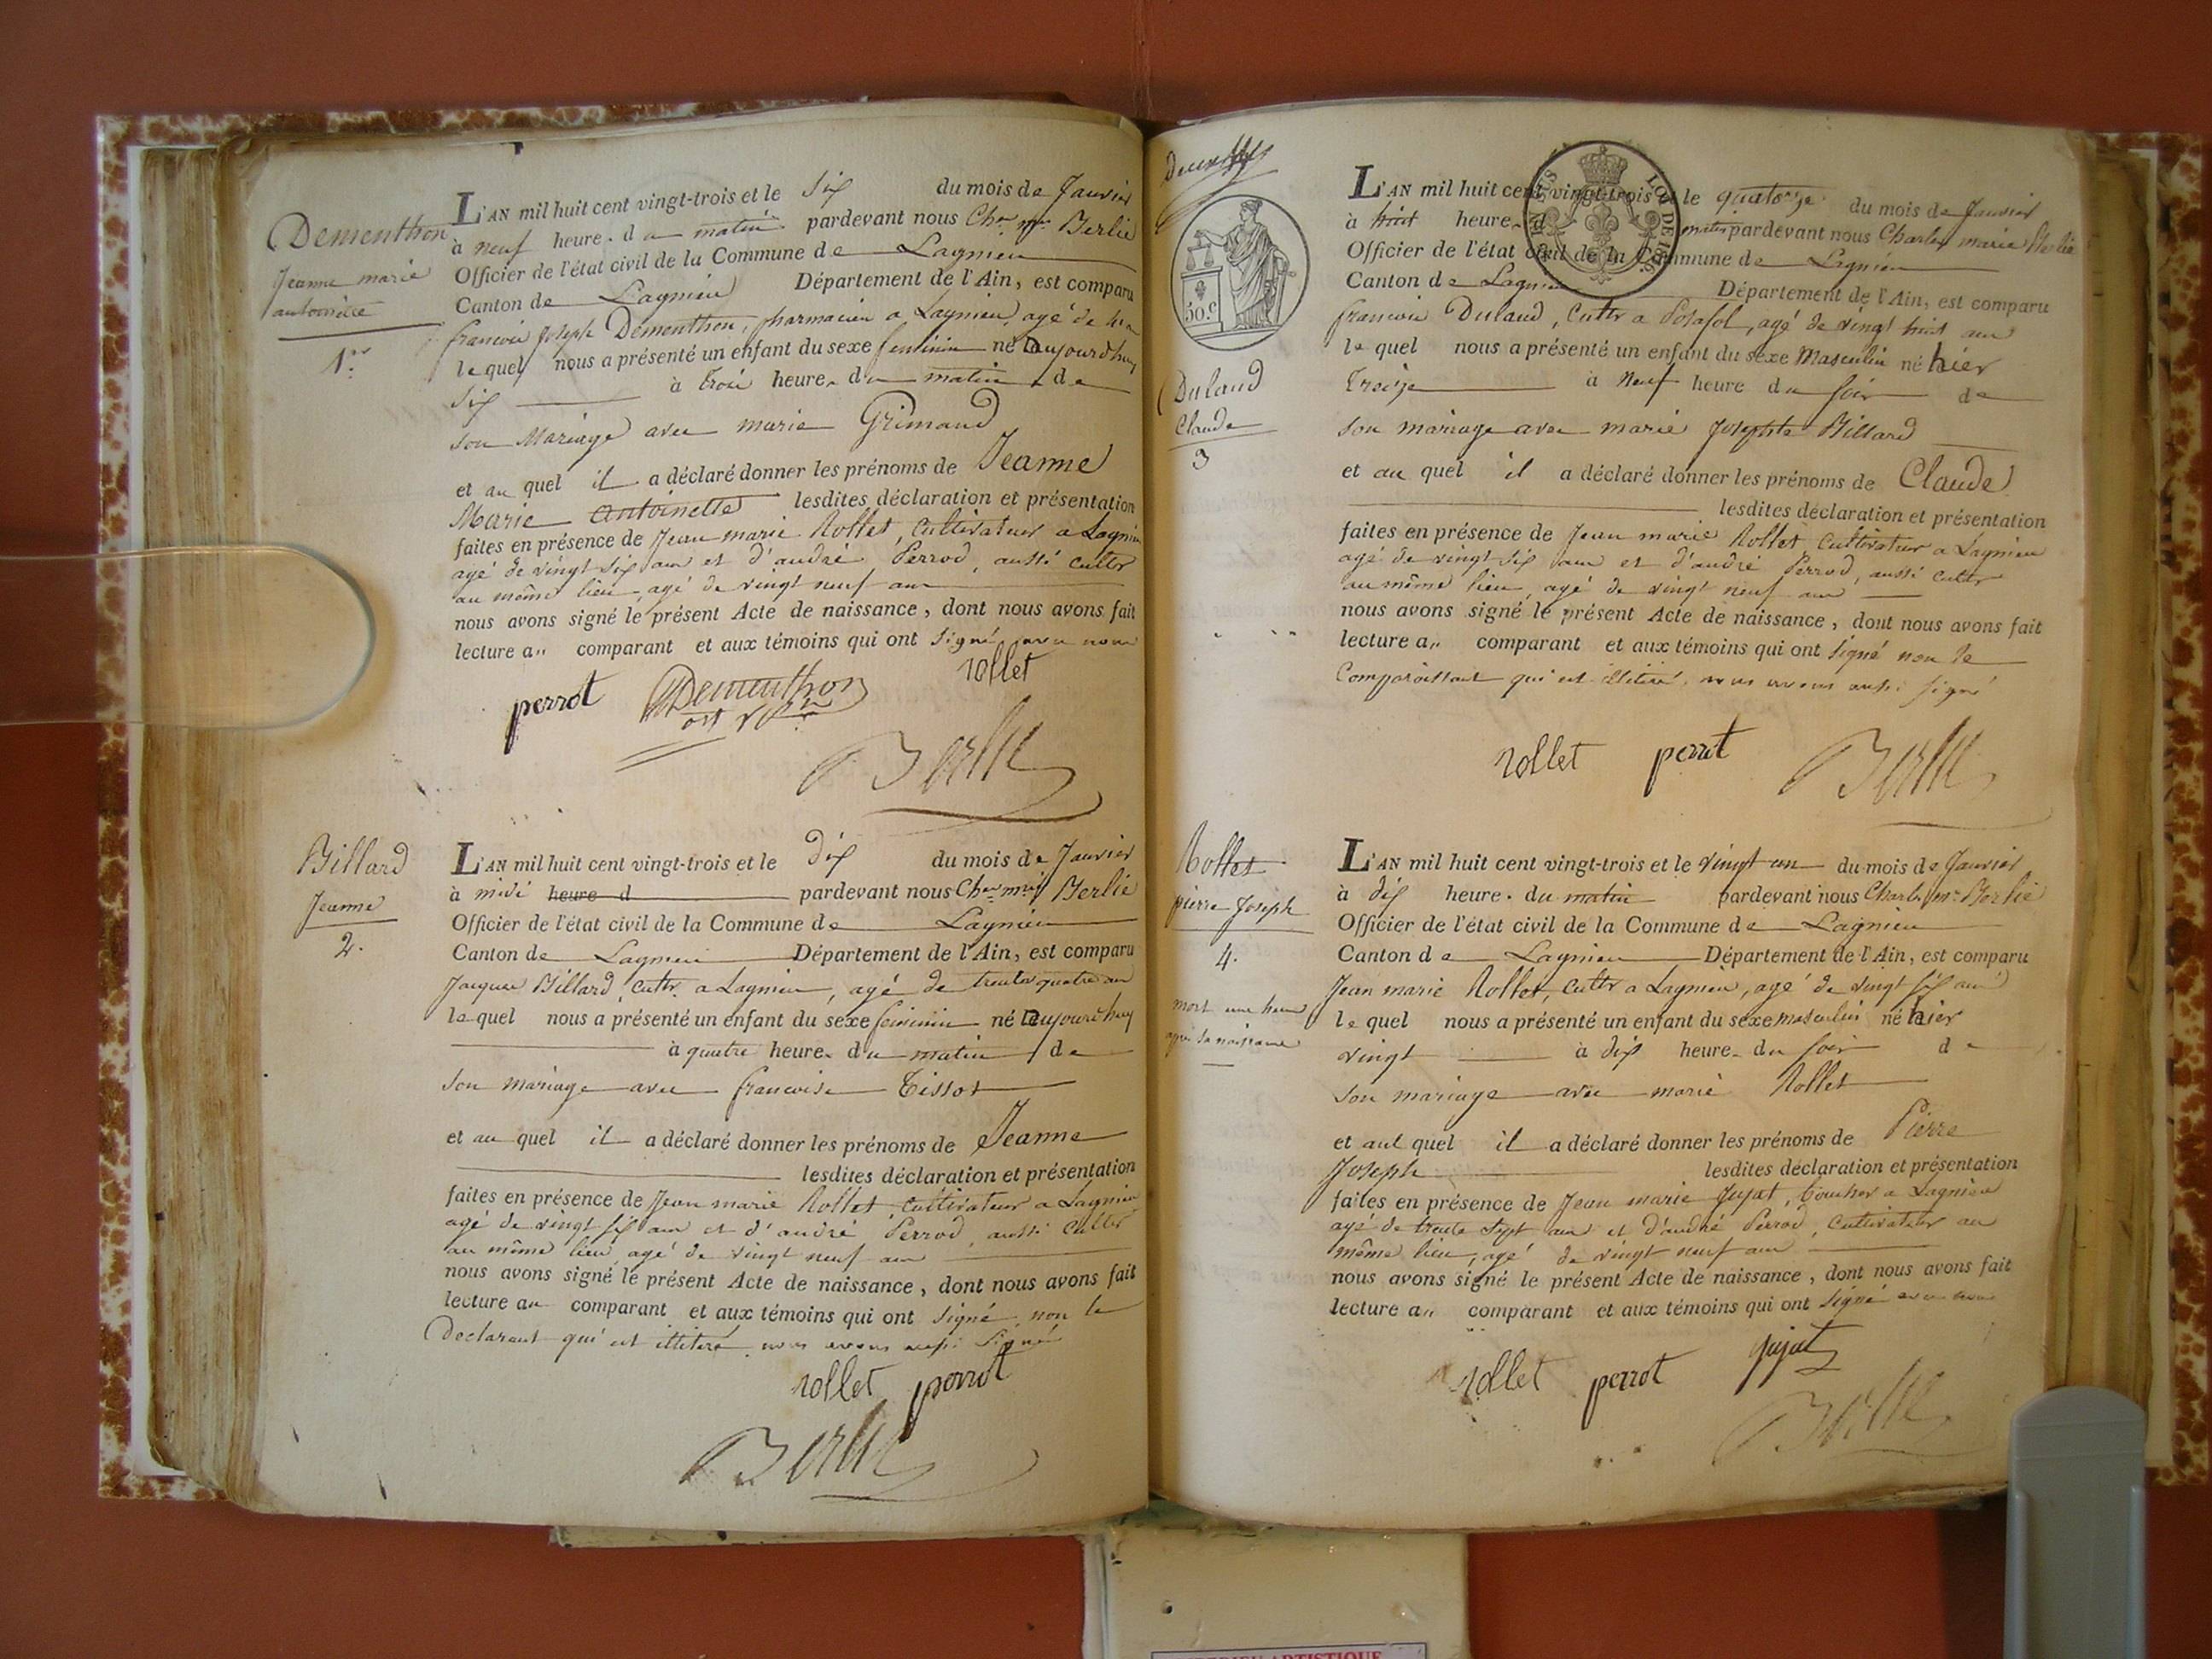 Dementhon
Jeanne marie
antoinette
1er
L'AN mil huit cent vingt-trois et le Six du mois de Janvier
à neuf heure. du matin pardevant nous Ch.er m.ie Berlie
Officier de l'état civil de la Commune de Lagnieu
Canton de Lagnieu Département de l'Ain, est comparu
francois Joseph Dementhon, pharmacien a Lagnieu, agé de
le quel nous a présenté un enfant du sexe feminin né aujourdhuy
Six à trois heure. du matin de
Son Mariage avec marie Grimaud
et au quel il a déclaré donner les prénoms de Jeanne
Marie antoinette lesdites déclaration et présentation
faites en présence de Jean marie Rollet, Cultivateur a Lagnieu
agé de vingt Six ans et d'andré Perrod, aussi Cultr
au même lieu, agé de vingt neuf ans
nous avons signé le présent Acte de naissance, dont nous avons fait
lecture au comparant et aux témoins qui ont Signé avec nous
perrot Dementhon rollet
Berlie
Billard
Jeanne
2.
L'AN mil huit cent vingt-trois et le dix du mois de Janvier
à midi heure d pardevant nous Ch.er m.ie Berlie
Officier de l'état civil de la Commune de Lagnieu
Canton de Lagnieu Département de l'Ain, est comparu
Jacques Billard, Cultr. a Lagnieu, agé de trente quatre an
le quel nous a présenté un enfant du sexe feminin né aujourdhuy
à quatre heure. du matin de
Son mariage avec francoise Tissot
et au quel il a déclaré donner les prénoms de Jeanne
lesdites déclaration et présentation
faites en présence de Jean marie Rollet, Cultivateur a Lagnieu
agé de vingt six ans et d'andré Perrod, aussi Cultr
au même lieu agé de vingt neuf ans
nous avons signé le présent Acte de naissance, dont nous avons fait
lecture au comparant et aux témoins qui ont Signé, non le
Declarant qui est illiteré, nous avons aussi Signé
rollet perrot
Berlie
50.c
LOI DE 1816.
Dulaud
Claude
3
L'AN mil huit cent vingt-trois et le quatorze du mois de Janvier
à huit heure. du matin pardevant nous Charles marie Berlie
Officier de l'état civil de la Commune de Lagnieu
Canton de Lagnieu Département de l'Ain, est comparu
francois Dulaud, Cultr a Posafol, agé de vingt huit ans
le quel nous a présenté un enfant du sexe Masculin né hier
Treize à Neuf heure du soir de
Son mariage avec marie Josephte Billard
et au quel il a déclaré donner les prénoms de Claude
lesdites déclaration et présentation
faites en présence de Jean marie Rollet Cultivateur a Lagnieu
agé de vingt six ans et d'andré Perrod, aussi Cultr
au même lieu, agé de vingt neuf ans
nous avons signé le présent Acte de naissance, dont nous avons fait
lecture au comparant et aux témoins qui ont Signé non le
Comparaissant qui est illiteré, nous avons aussi signé
rollet perrot Berlie
Rollet
pierre Joseph
4.
mort une heure
après sa naissance
L'AN mil huit cent vingt-trois et le vingt un du mois de Janvier
à dix heure. du matin pardevant nous Charles m.ie Berlie
Officier de l'état civil de la Commune de Lagnieu
Canton de Lagnieu Département de l'Ain, est comparu
Jean marie Rollet, Cultr a Lagnieu, agé de vingt six ans
le quel nous a présenté un enfant du sexe masculin né hier
vingt à dix heure. du soir de
Son mariage avec marie Rollet
et au quel il a déclaré donner les prénoms de Pierre
Joseph lesdites déclaration et présentation
faites en présence de Jean marie Jujat, boucher a Lagnieu
agé de trente Sept ans et d'andré Perrod, Cultivateur au
même lieu, agé de vingt neuf ans
nous avons signé le présent Acte de naissance, dont nous avons fait
lecture au comparant et aux témoins qui ont Signé avec nous
rollet perrot jujat
Berlie
ARTISTIQUE